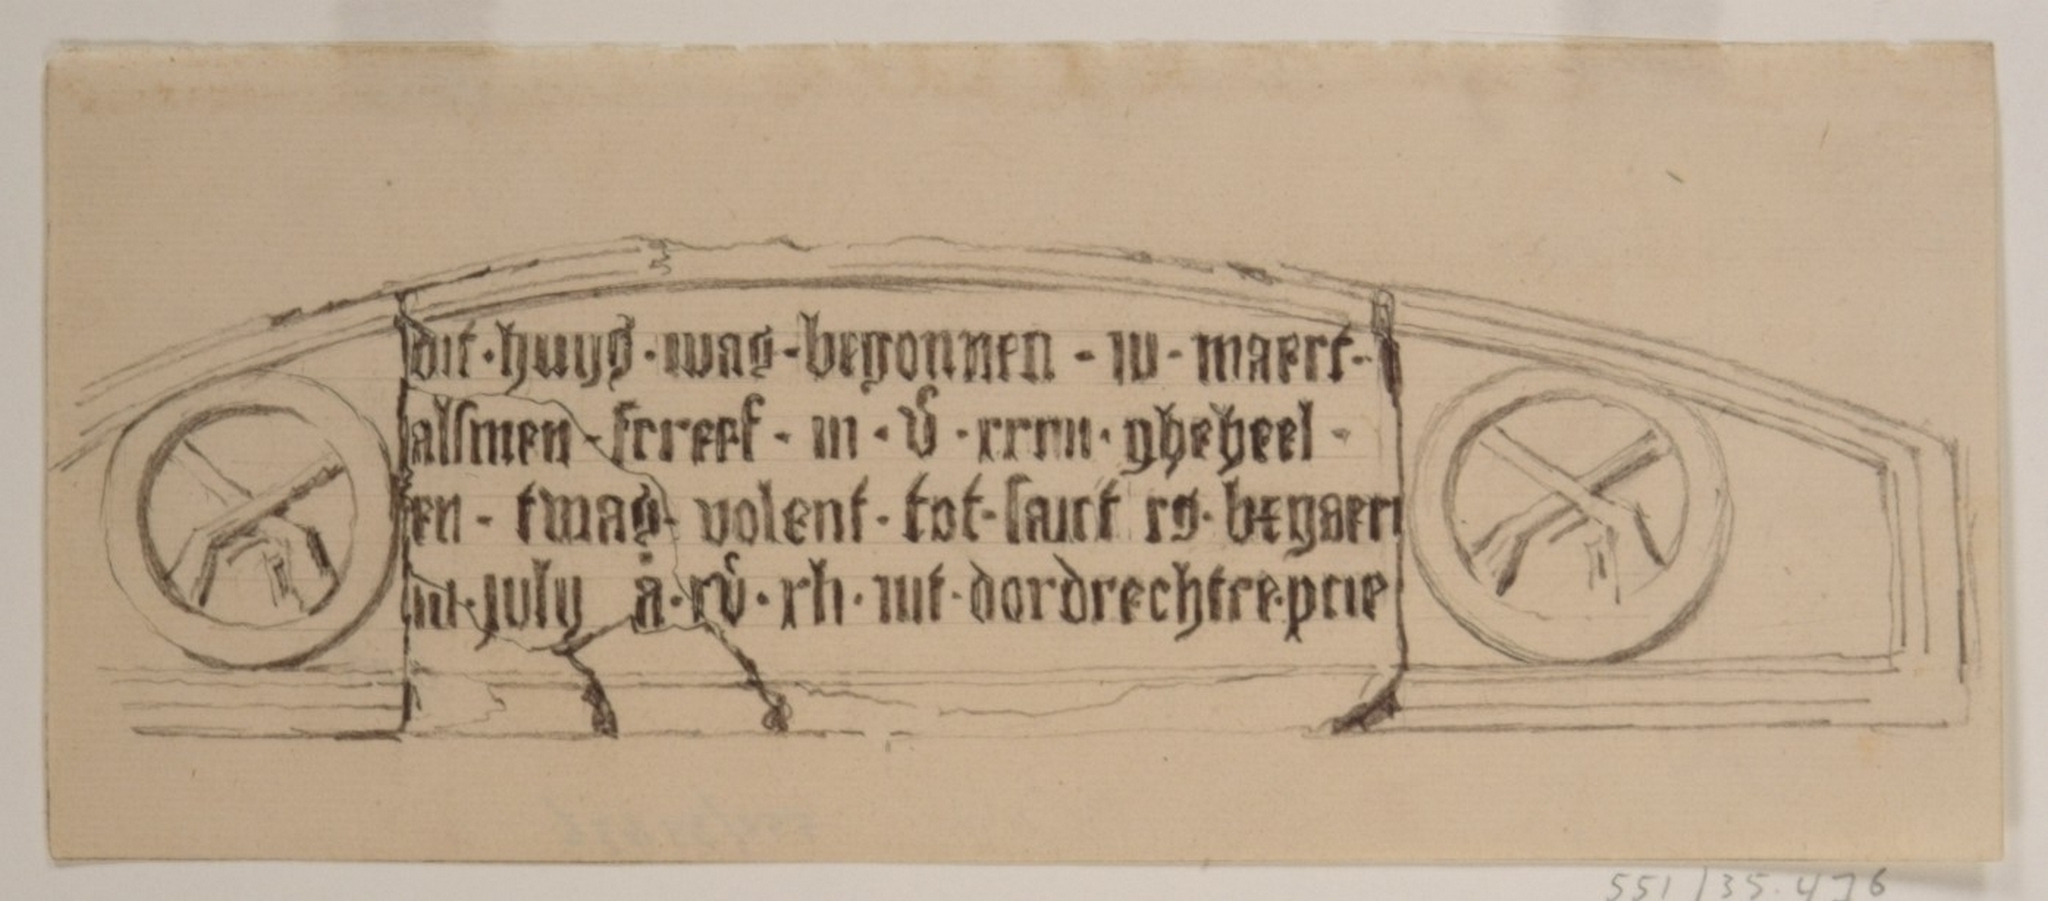 dit · huys · was · begonnen - iv - maert -
alsmen - screef - m · vᶜ · xxxiii · gheheel -
en - twas volent · tot · sairt rs · begaert
in · july a · xvᶜ · xli · uut · dordrechtre · prie
551/35.476